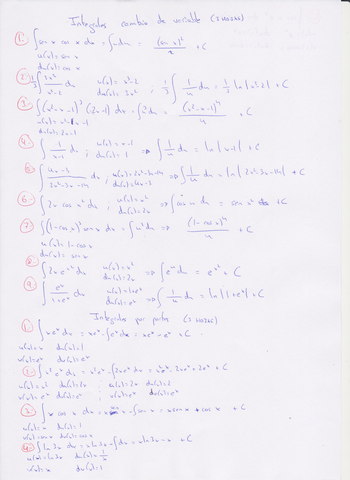 Integrales cambio de variable
1. ∫ sen x cos x dx = ∫ u du = (sen x)² + C
u(x) = sen x
du(x) = cos x
2. 1/3 ∫ 3x² / x³-2 dx ; u(x) = x³-2 ; 1/3 ∫ 1/u du = 1/3 ln|x³-2| + C
du(x) = 3x²
3. ∫ (x²-x-1)³ (2x-1) dx = ∫ u³ du = (x²-x-1)⁴ / 4 + C
u(x) = x²-x-1
du(x) = 2x-1
4. ∫ 1 / x-1 dx ; u(x) = x-1 ⇒ ∫ 1/u du = ln|x-1| + C
du(x) = 1
5. ∫ 4x-3 / 2x²-3x-14 dx ; u(x) = 2x²-3x-14 ⇒ ∫ 1/u du = ln|2x²-3x-14| + C
du(x) = 4x-3
6. ∫ 2x cos x² dx ; u(x) = x² ⇒ ∫ cos u du = sen x² + C
du(x) = 2x
7. ∫ (1-cos x)³ sen x dx ⇒ ∫ u³ du ⇒ (1-cos x)⁴ / 4 + C
u(x) = 1-cos x
du(x) = sen x
8. ∫ 2x e^x² dx ; u(x) = x² ⇒ ∫ e^u du = e^x² + C
du(x) = 2x
9. ∫ e^x / 1+e^x dx ; u(x) = 1+e^x ⇒ ∫ 1/u du = ln|1+e^x| + C
du(x) = e^x
Integrales por partes
1. ∫ x e^x dx = x e^x - ∫ e^x dx = x e^x - e^x + C
u(x) = x du(x) = 1
v(x) = e^x dv(x) = e^x
2. ∫ x² e^x dx = x² e^x - ∫ 2x e^x dx = x² e^x - 2x e^x + 2e^x + C
u(x) = x² du(x) = 2x ; u(x) = 2x du(x) = 2
v(x) = e^x dv(x) = e^x ; v(x) = e^x dv(x) = e^x
3. ∫ x cos x dx = x sen x - ∫ sen x = x sen x + cos x + C
u(x) = x du(x) = 1
v(x) = sen x dv(x) = cos x
4. ∫ ln 3x dx = x ln 3x - ∫ dx = x ln 3x - x + C
u(x) = ln 3x du(x) = 1/x
v(x) = x dv(x) = 1